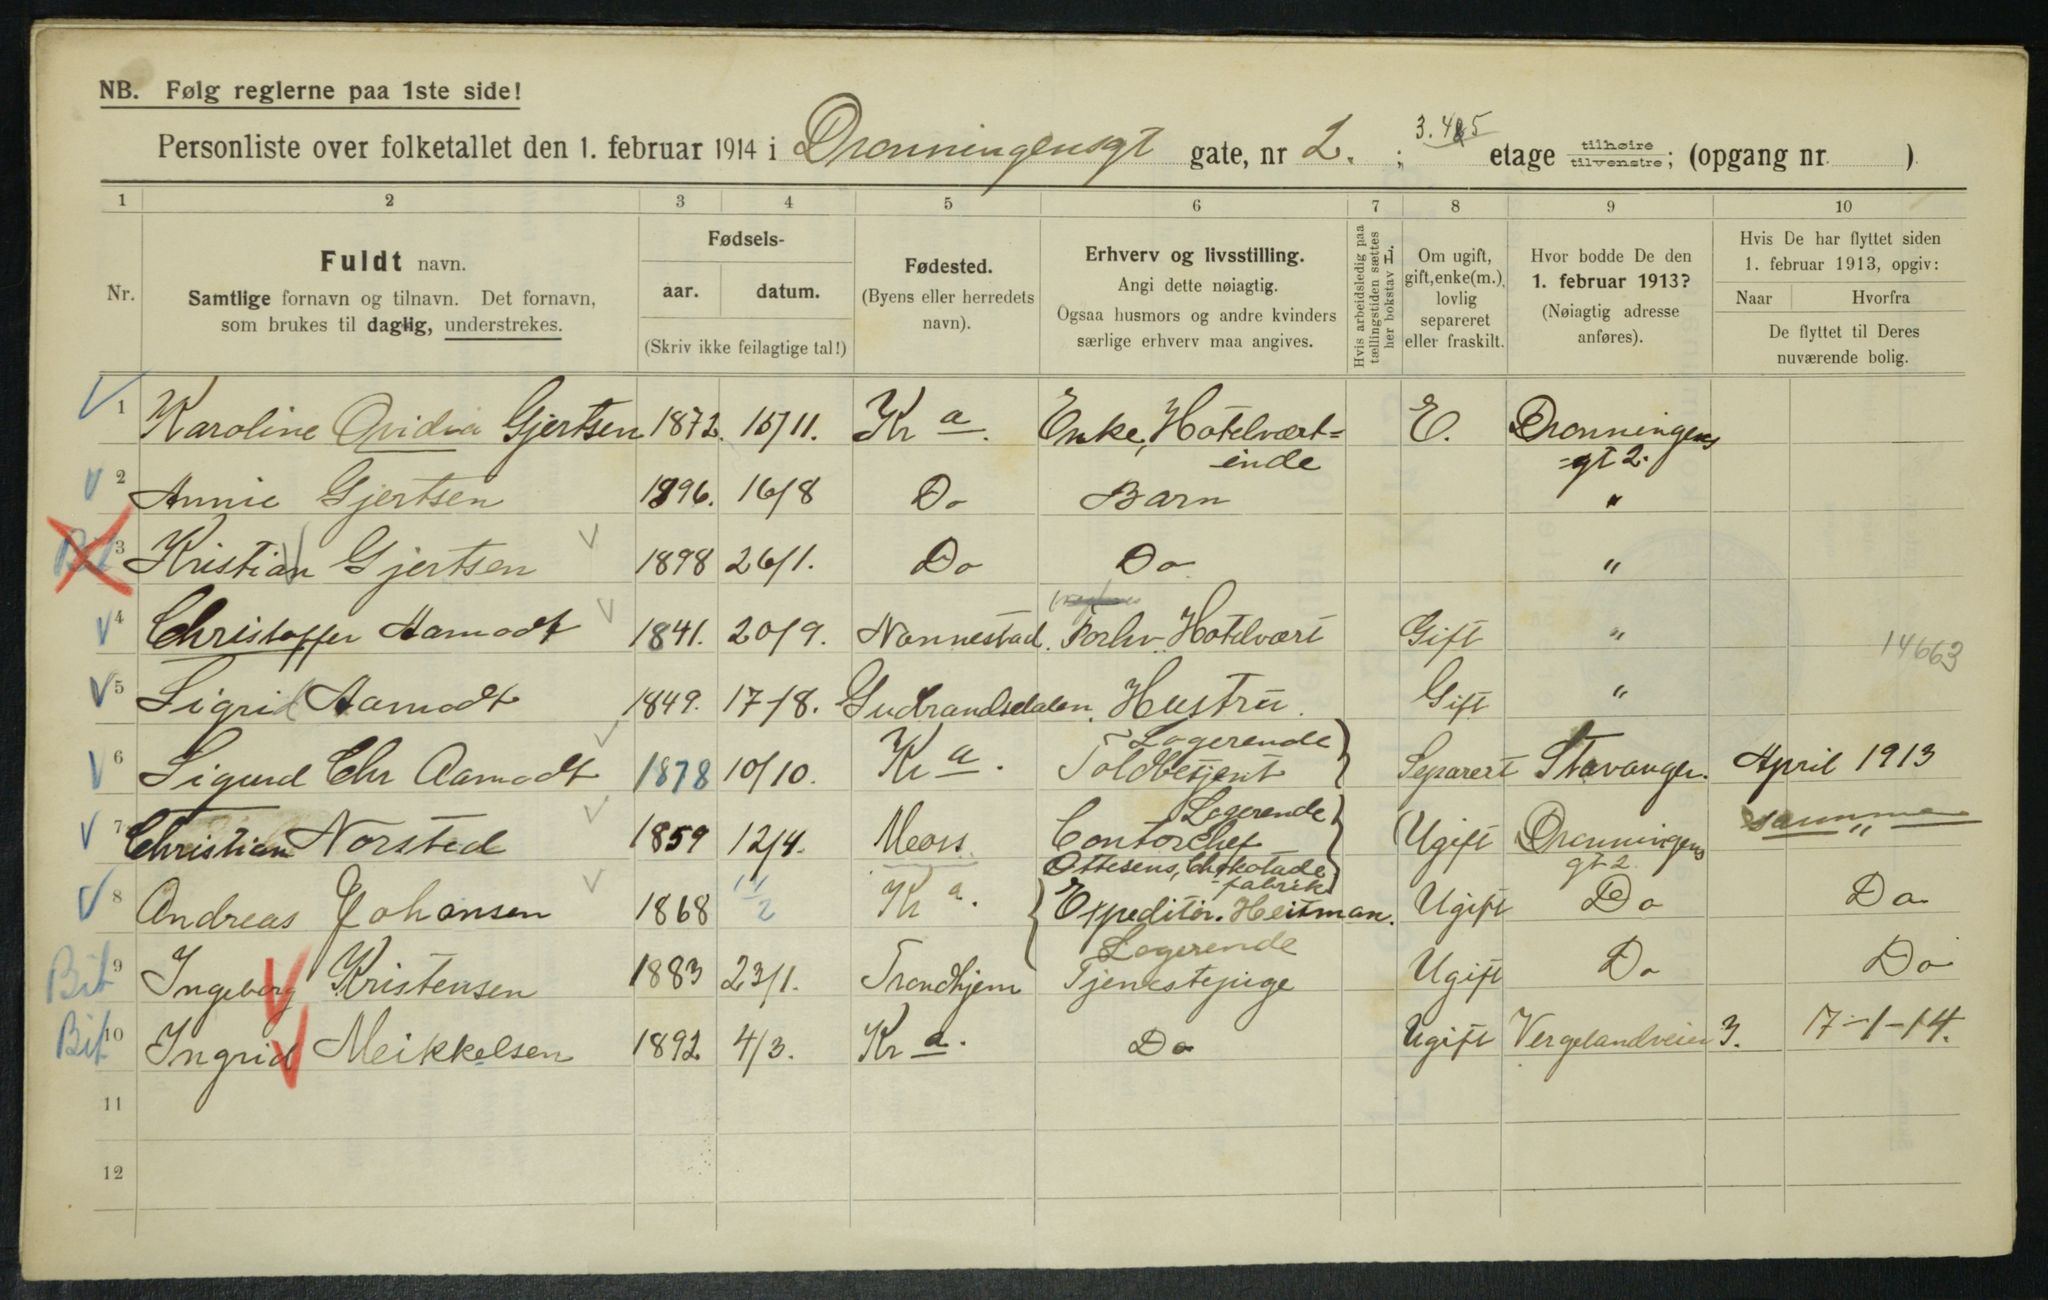 NB. Følg reglerne paa 1ste side!
Personliste over folketallet den 1. februar 1914 i Dronningensgt gate, nr 2. ; 3. 4 & 5 etage tilhøire tilvenstre; (opgang nr. )
1 2 3 4 5 6 7 8 9 10
Nr.
Fuldt navn.
Samtlige fornavn og tilnavn. Det fornavn,
som brukes til daglig, understrekes.
Fødsels-
aar. datum.
(Skriv ikke feilagtige tal!)
Fødested.
(Byens eller herredets
navn).
Erhverv og livsstilling.
Angi dette nøiagtig.
Ogsaa husmors og andre kvinders
særlige erhverv maa angives.
Hvis arbeidsledig paa
tællingstiden sættes
her bokstav L.
Om ugift,
gift, enke(m.),
lovlig
separeret
eller fraskilt.
Hvor bodde De den
1. februar 1913?
(Nøiagtig adresse
anføres).
Hvis De har flyttet siden
1. februar 1913, opgiv:
Naar Hvorfra
De flyttet til Deres
nuværende bolig.
1 Karoline Ovidia Gjertsen 1872. 15/11. Kra. Enke, Hotelvært= E. Dronningens
inde =gt 2.
2 Annie Gjertsen 1896. 16/8 Do Barn "
Bit 3 Kristian Gjertsen 1898 26/1. Do Do "
4 Christoffer Aamodt 1841. 20/9. Nannestad. Forhv. Hotelvært Gift "
14663
5 Sigrid Aamodt 1849. 17/8. Gudbrandsdalen. Hustru. Gift "
Logerende
6 Sigurd Chr Aamodt 1878 10/10. Kra. Toldbetjent Separert Stavanger. April 1913
Logerende
7 Christian Norsted 1859 12/4. Moss. Contorchef Ugift Dronningens samme "
Ottesens, Chokolade gt 2.
=fabrik
8 Andreas Johansen 1868 11/2 Kra. Expeditør. Heitman. Ugift Do Do
Logerende
Bit 9 Ingeborg Kristensen 1883 23/1. Trondhjem Tjenestepige Ugift Do Do
Bit 10 Ingrid Meikkelsen 1892 4/3. Kra. Do Ugift Vergelandveien 3. 17-1-14.
11
12